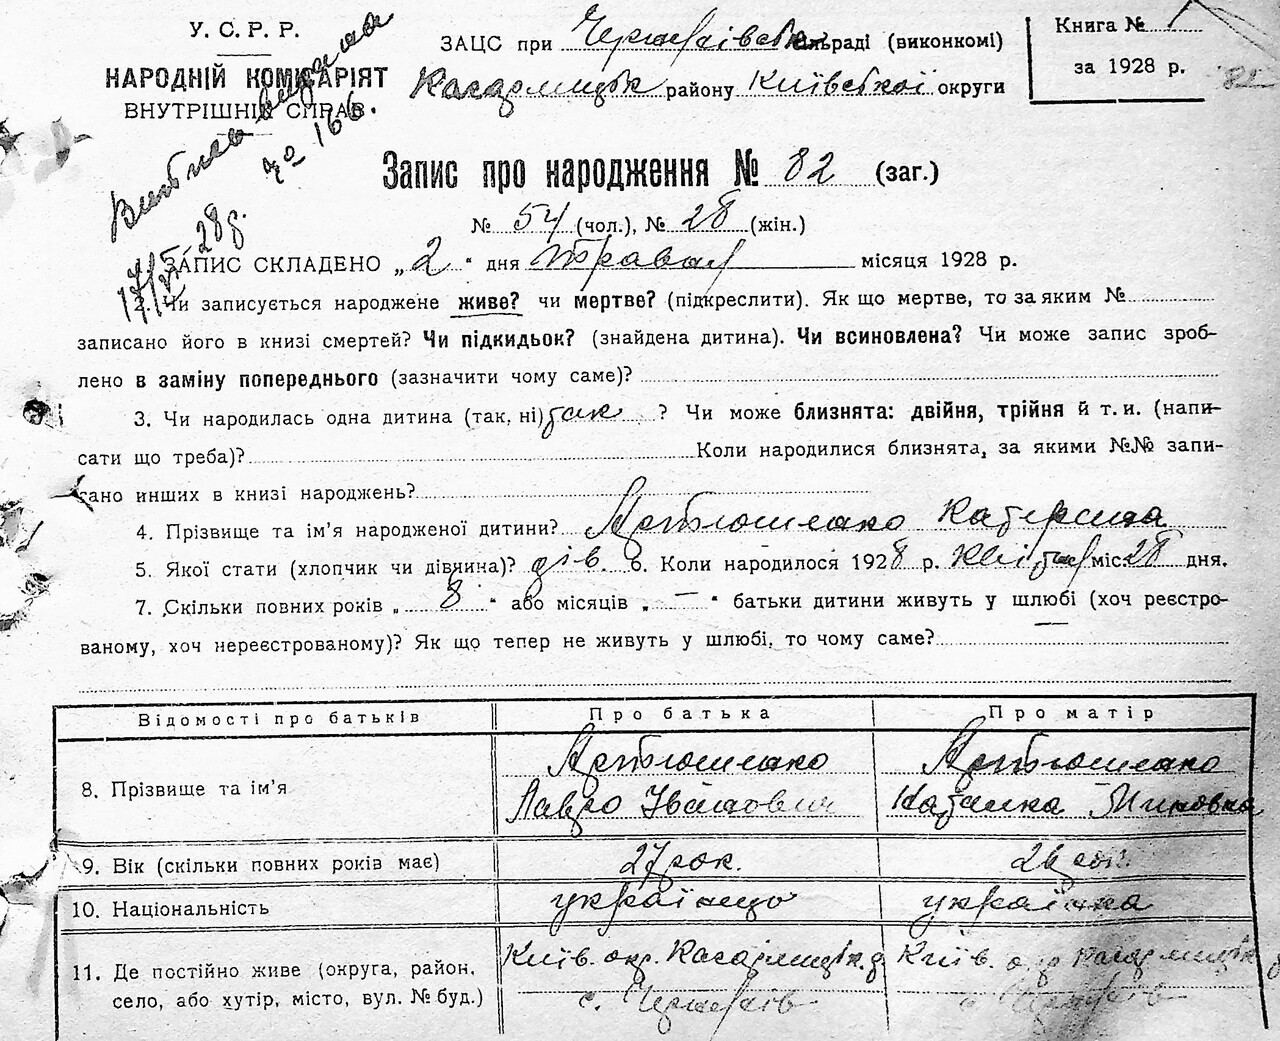 У. С. Р. Р.
НАРОДНІЙ КОМІСАРІЯТ
ВНУТРІШНІХ СПРАВ
Витяг видано
17/VI 28 р.
ЗАЦС при сільраді (виконкомі)
Кагарлицьк району Київської округи
Книга № 1
за 1928 р.
82
Запис про народження № 82 (заг.)
№ 54 (чол.), № 28 (жін.)
ЗАПИС СКЛАДЕНО „2“ дня травня місяця 1928 р.
2. Чи записується народжене живе? чи мертве? (підкреслити). Як що мертве, то за яким №
записано його в книзі смертей? Чи підкидьок? (знайдена дитина). Чи всиновлена? Чи може запис зроб-
лено в заміну попереднього (зазначити чому саме)?
3. Чи народилась одна дитина (так, ні) так ? Чи може близнята: двійня, трійня й т. и. (напи-
сати що треба)? Коли народилися близнята, за якими №№ запи-
сано инших в книзі народжень?
4. Прізвище та ім'я народженої дитини? Артюшенко Катерина
5. Якої стати (хлопчик чи дівчина)? дів. 6. Коли народилося 1928 р. квітня міс. 28 дня.
7. Скільки повних років „ 8 “ або місяців „ — “ батьки дитини живуть у шлюбі (хоч реєстро-
ваному, хоч нереєстрованому)? Як що тепер не живуть у шлюбі, то чому саме?
Відомості про батьків Про батька Про матір
8. Прізвище та ім'я Артюшенко Артюшенко
Лавро Іванович
9. Вік (скільки повних років має) 27 рок. 26 рок.
10. Національність українцо українка
11. Де постійно живе (округа, район, Київ. окр. Кагарлицьк. р Київ. окр Кагарлицьк р
село, або хутір, місто, вул. № буд.) с.